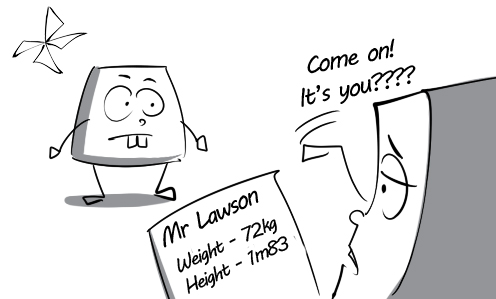 Come on!
It's you????
Mr Lawson
Weight - 72kg
Height - 1m83